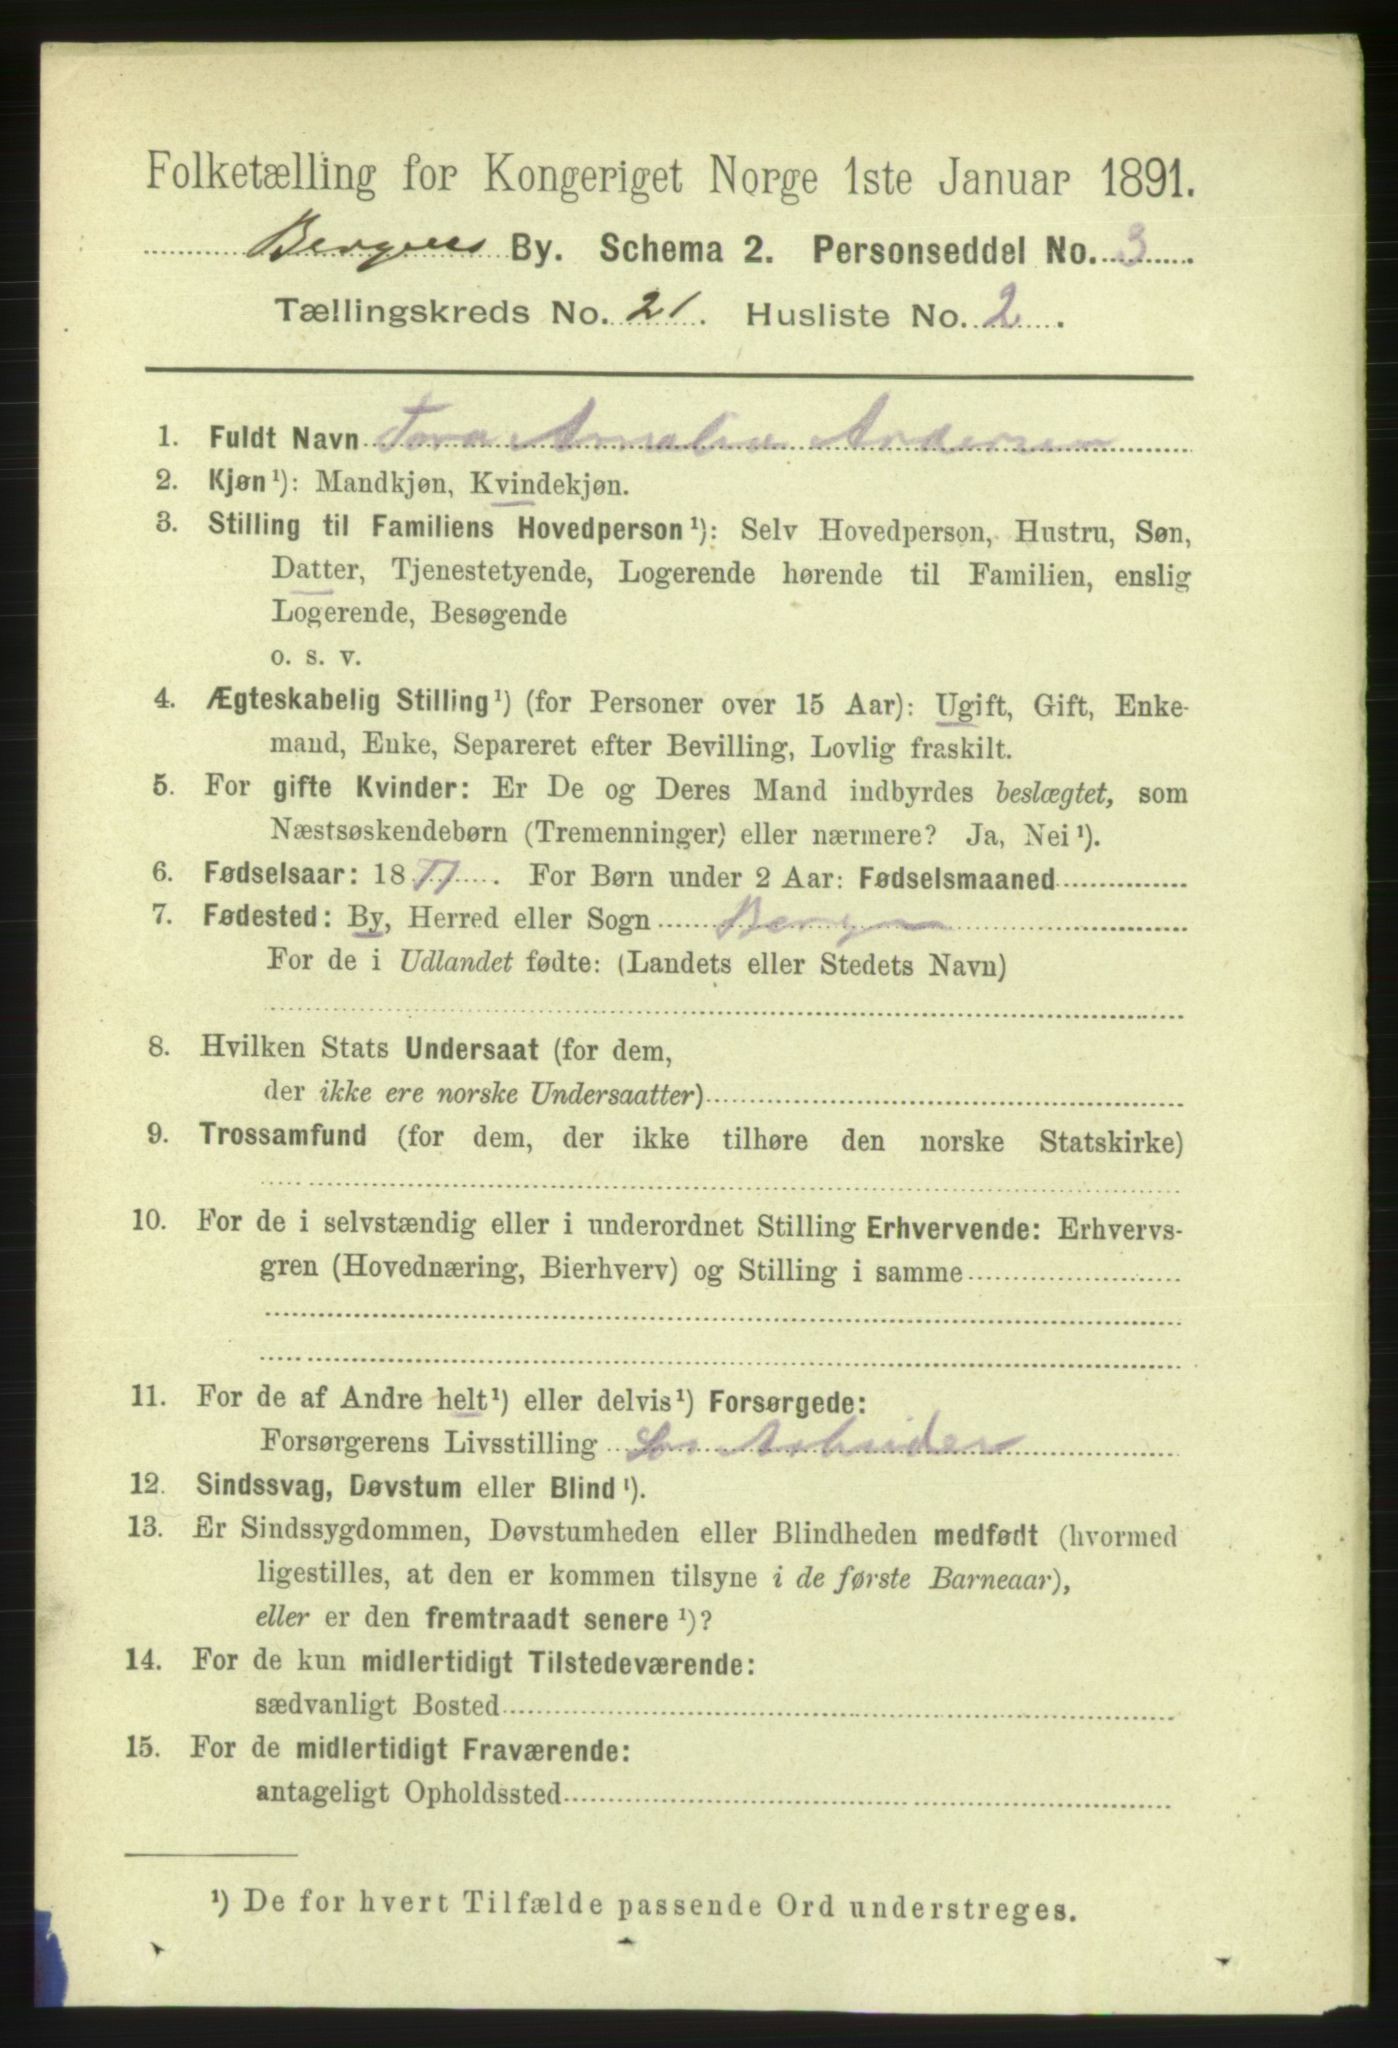 Folketælling for Kongeriget Norge 1ste Januar 1891.
Bergens By. Schema 2. Personseddel No. 3.
Tællingskreds No. 21. Husliste No. 2.
1. Fuldt Navn Tora Amalie Andersen
2. Kjøn¹): Mandkjøn, Kvindekjøn.
3. Stilling til Familiens Hovedperson¹): Selv Hovedperson, Hustru, Søn,
Datter, Tjenestetyende, Logerende hørende til Familien, enslig
Logerende, Besøgende
o. s. v.
4. Ægteskabelig Stilling¹) (for Personer over 15 Aar): Ugift, Gift, Enke-
mand, Enke, Separeret efter Bevilling, Lovlig fraskilt.
5. For gifte Kvinder: Er De og Deres Mand indbyrdes beslægtet, som
Næstsøskendebørn (Tremenninger) eller nærmere? Ja, Nei¹).
6. Fødselsaar: 1877. For Børn under 2 Aar: Fødselsmaaned
7. Fødested: By, Herred eller Sogn Bergen
For de i Udlandet fødte: (Landets eller Stedets Navn)
8. Hvilken Stats Undersaat (for dem,
der ikke ere norske Undersaatter)
9. Trossamfund (for dem, der ikke tilhøre den norske Statskirke)
10. For de i selvstændig eller i underordnet Stilling Erhvervende: Erhvervs-
gren (Hovednæring, Bierhverv) og Stilling i samme
11. For de af Andre helt¹) eller delvis¹) Forsørgede:
Forsørgerens Livsstilling Løs Arbeider
12. Sindssvag, Døvstum eller Blind¹).
13. Er Sindssygdommen, Døvstumheden eller Blindheden medfødt (hvormed
ligestilles, at den er kommen tilsyne i de første Barneaar),
eller er den fremtraadt senere¹)?
14. For de kun midlertidigt Tilstedeværende:
sædvanligt Bosted
15. For de midlertidigt Fraværende:
antageligt Opholdssted
¹) De for hvert Tilfælde passende Ord understreges.